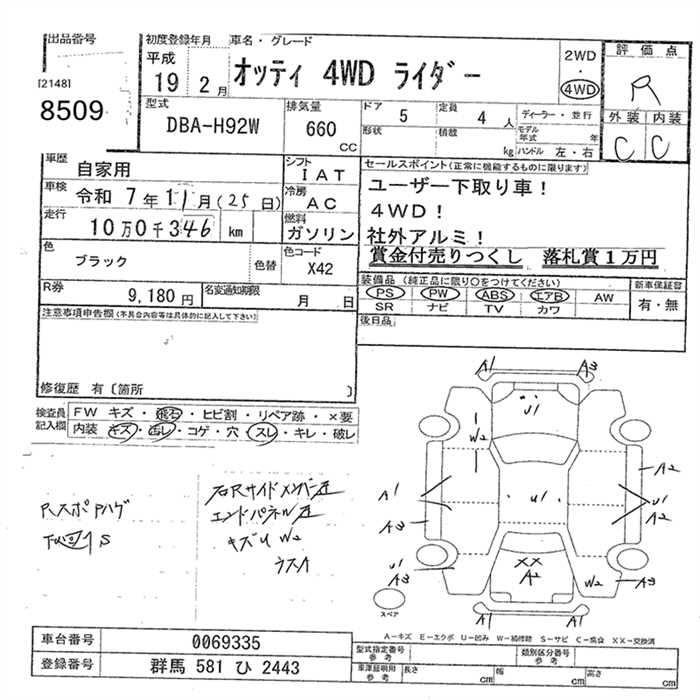 出品番号
[2148]
8509
初度登録年月
平成
19 2月
車名・グレード
オッティ 4WD ライダー
2WD
・
4WD
評価点
R
外装 内装
C C
型式
DBA-H92W
排気量
660
CC
ドア
5
定員
4 人
ディーラー・並行
形状
積載
kg
モデル年式
年
ハンドル 左・右
車歴
自家用
シフト
IAT
車検
令和 7年 11月(25日)
冷房
AC
走行
10万0千346 km
燃料
ガソリン
色
ブラック
色替
色コード
X42
R券
9,180 円
名変通知期限
月 日
セールスポイント(正常に機能するものに限ります)
ユーザー下取り車!
4WD!
社外アルミ!
賞金付売りつくし 落札賞1万円
装備品(純正品に限り○をつけてください)
PS PW ABS エアB AW
SR ナビ TV カワ
新車保証書
有・無
後日品
注意事項申告欄(不具合内容等は具体的に記入して下さい)
修復歴 有〔箇所 〕
検査員記入欄
FW キズ・飛石・ヒビ割・リペア跡・×要
内装 キズ・汚レ・コゲ・穴・スレ・キレ・破レ
エンドパネル歪
キズU W2
A1 A3
U1
W2
A2
A1
U1
U1
A2
A3
U1
A3
XX
A2
W2
A3
A1 A1
スペア
A-キズ E-エクボ U-凹み W-補修跡 S-サビ C-腐食 XX-交換済
車台番号
0069335
登録番号
群馬 581 ひ 2443
型式指定番号
参考
類別区分番号
参考
車庫証明用
参考
長さ
cm
幅
cm
高さ
cm